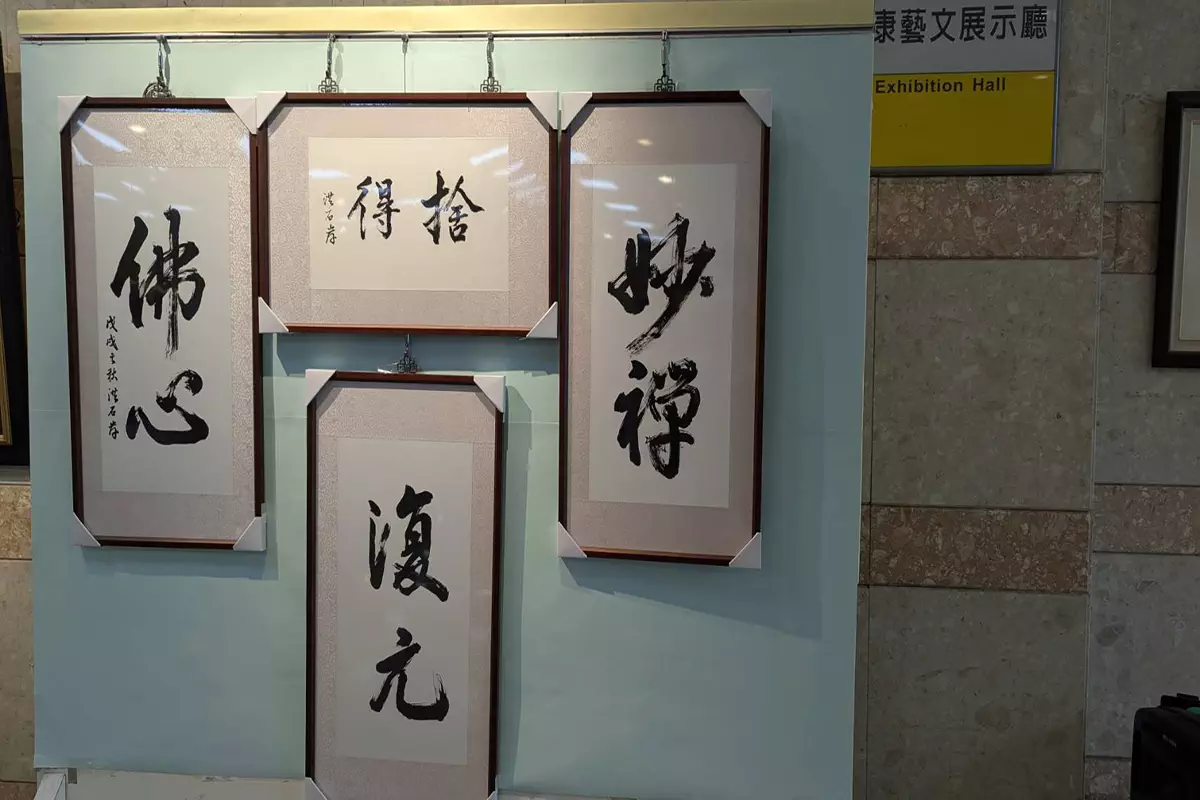 康藝文展示廳
Exhibition Hall
佛心
戊戌之秋洪石岸
捨得
洪石岸
妙禪
復元